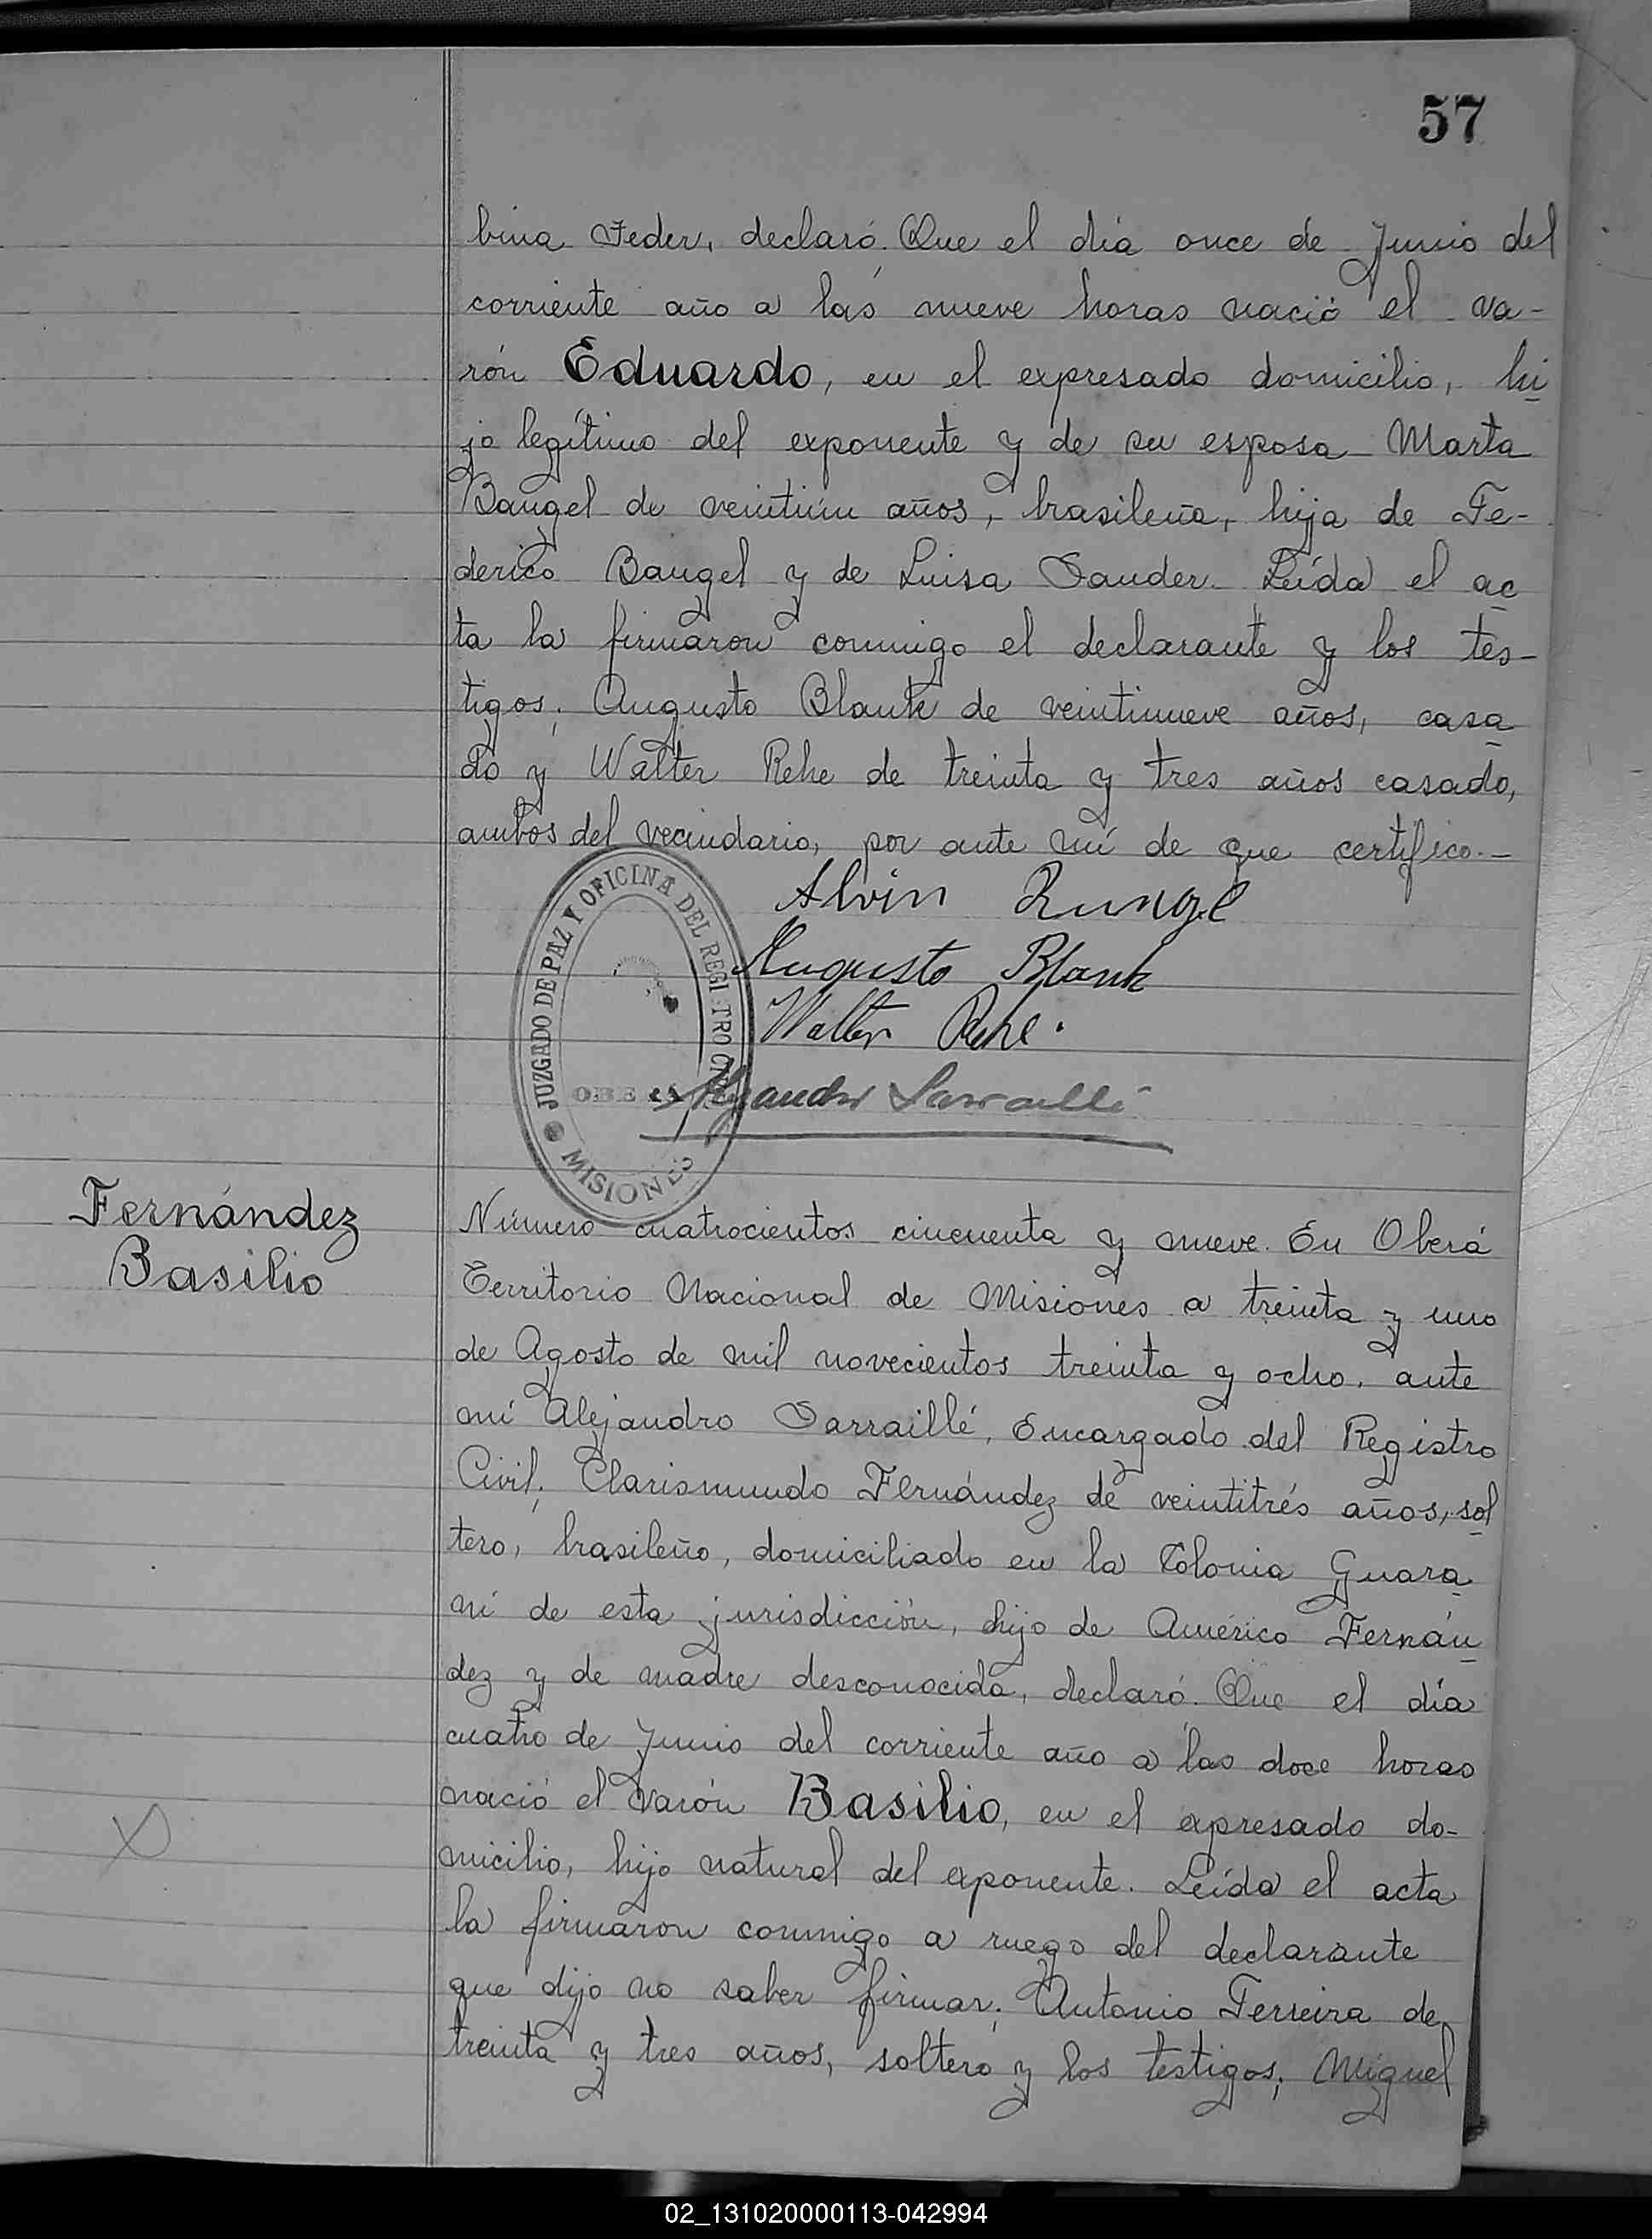 57
bina Feder, declaró. Que el día once de Junio del
corriente año a las nueve horas nació el va-
rón Eduardo, en el expresado domicilio, hi
jo legítimo del exponente y de su esposa Marta
Bangel de veintiún años, brasileña, hija de Fe-
derico Bangel y de Luisa Sander. Leída el ac
ta la firmaron conmigo el declarante y los tes-
tigos; Augusto Blank de veintinueve años, casa
do y Walter Rehe de treinta y tres años casado,
ambos del vecindario, por ante mí de que certifico.—
Alvin Runge
Augusto Blank
Walter Rehe.
Alejandro Sarraillé
JUZGADO DE PAZ Y OFICINA DEL REGISTRO CIVIL
OBERA
MISIONES
Fernández
Basilio
Número cuatrocientos cincuenta y nueve. En Oberá
Territorio Nacional de Misiones a treinta y uno
de Agosto de mil novecientos treinta y ocho, ante
mí Alejandro Sarraillé, Encargado del Registro
Civil; Clarismundo Fernández de veintitrés años, sol
tero, brasileño, domiciliado en la Colonia Guara
ní de esta jurisdicción, hijo de Américo Fernán
dez y de madre desconocida, declaró. Que el día
cuatro de Junio del corriente año a las doce horas
nació el varón Basilio, en el expresado do-
micilio, hijo natural del exponente. Leída el acta
la firmaron conmigo a ruego del declarante
que dijo no saber firmar; Antonio Ferreira de
treinta y tres años, soltero y los testigos; Miguel
02_131020000113-042994